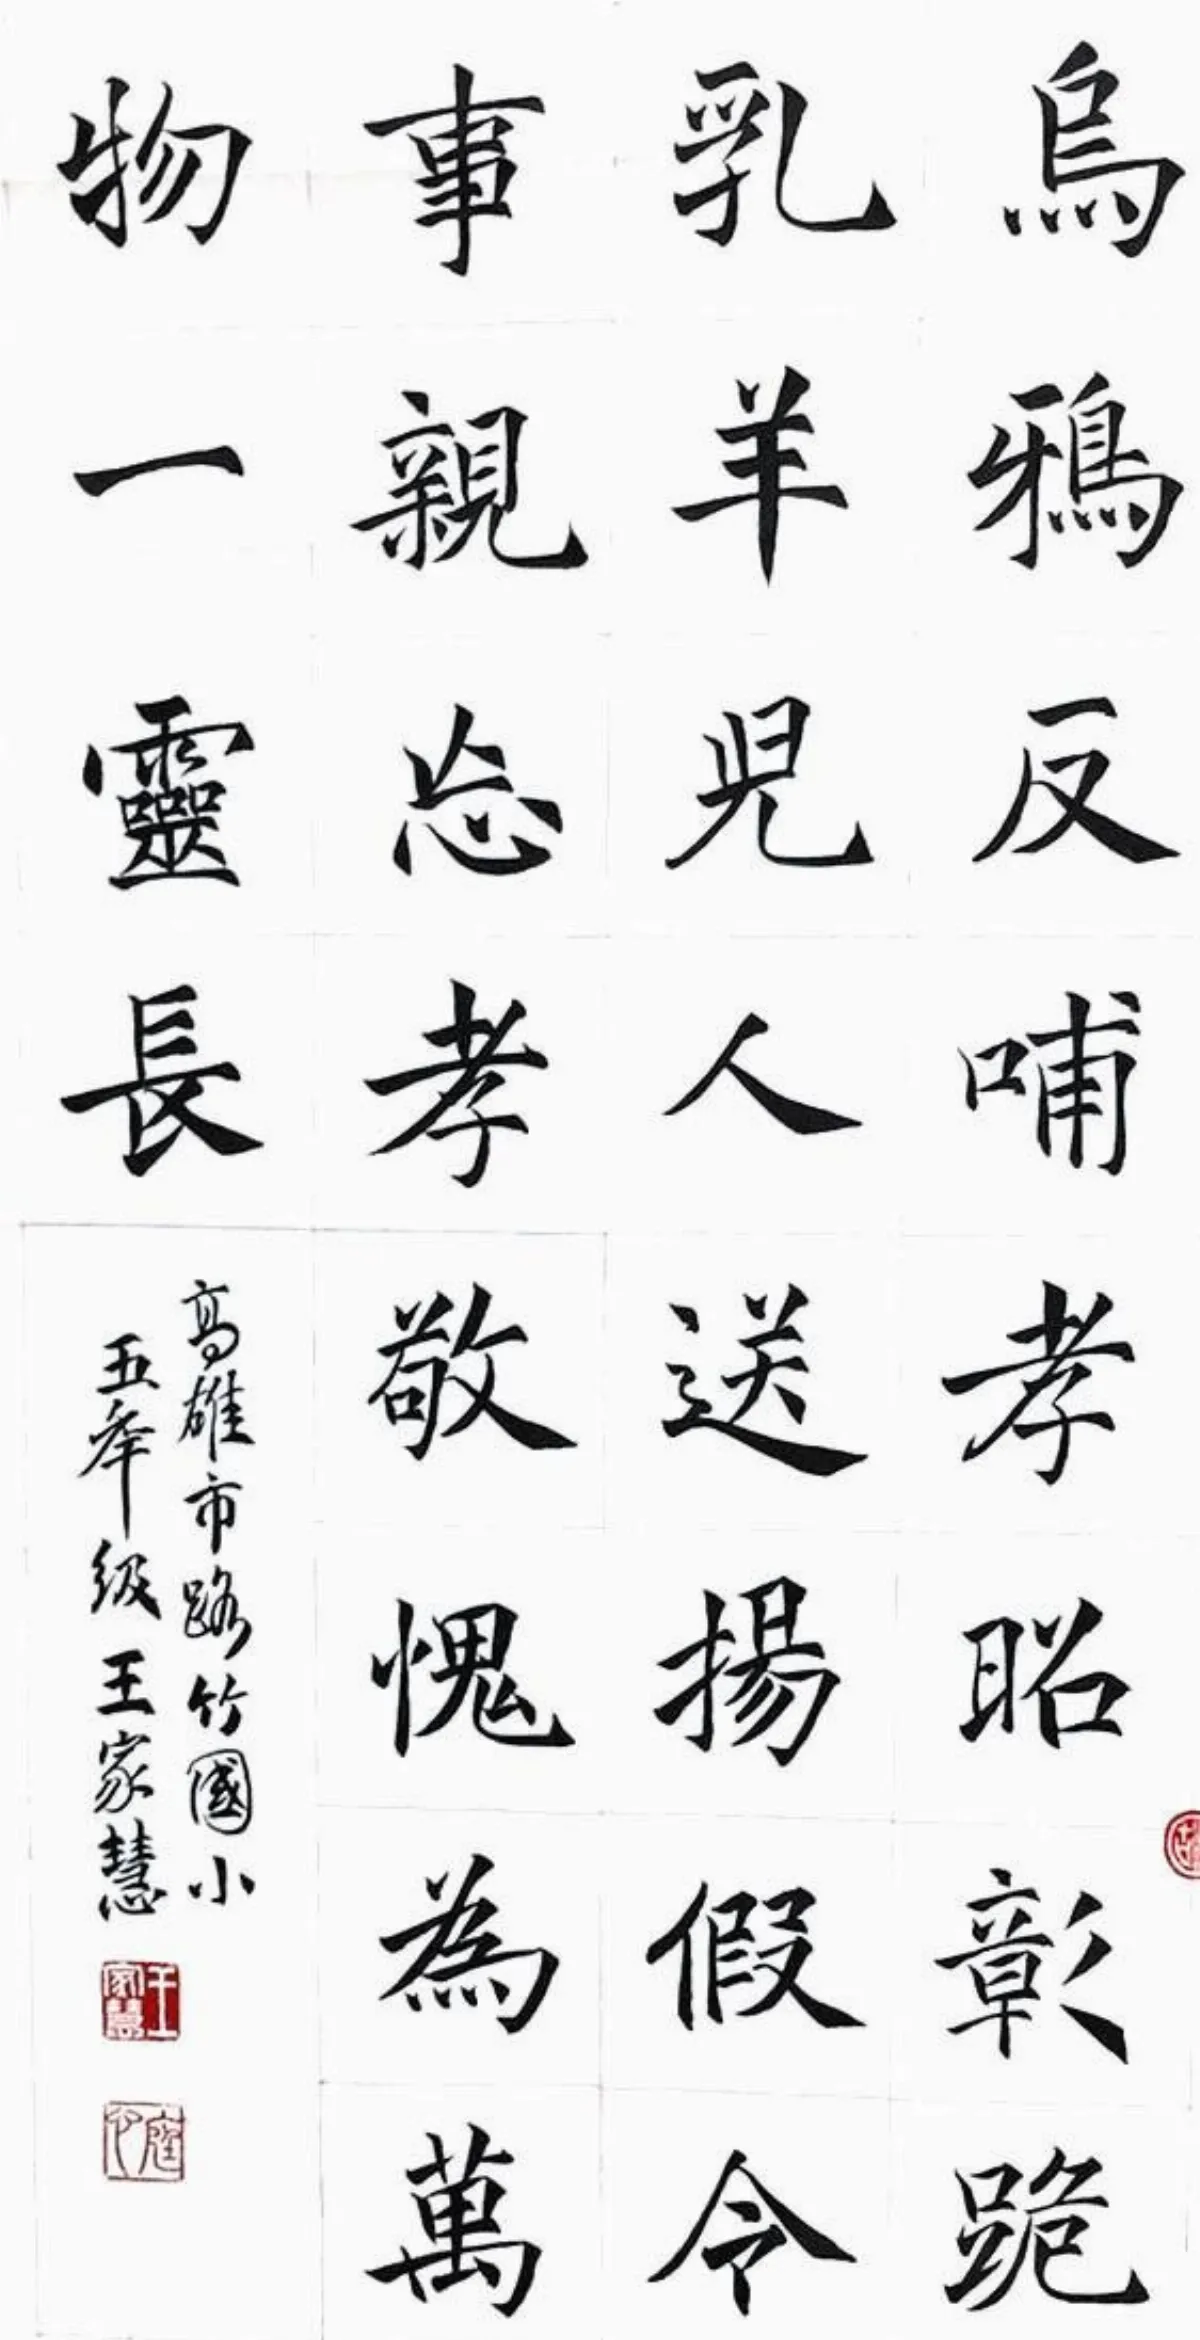 烏鴉反哺孝昭彰跪
乳羊兒人送揚假令
事親忘孝敬愧為萬
物一靈長
高雄市路竹國小
五年級王家慧
王家慧